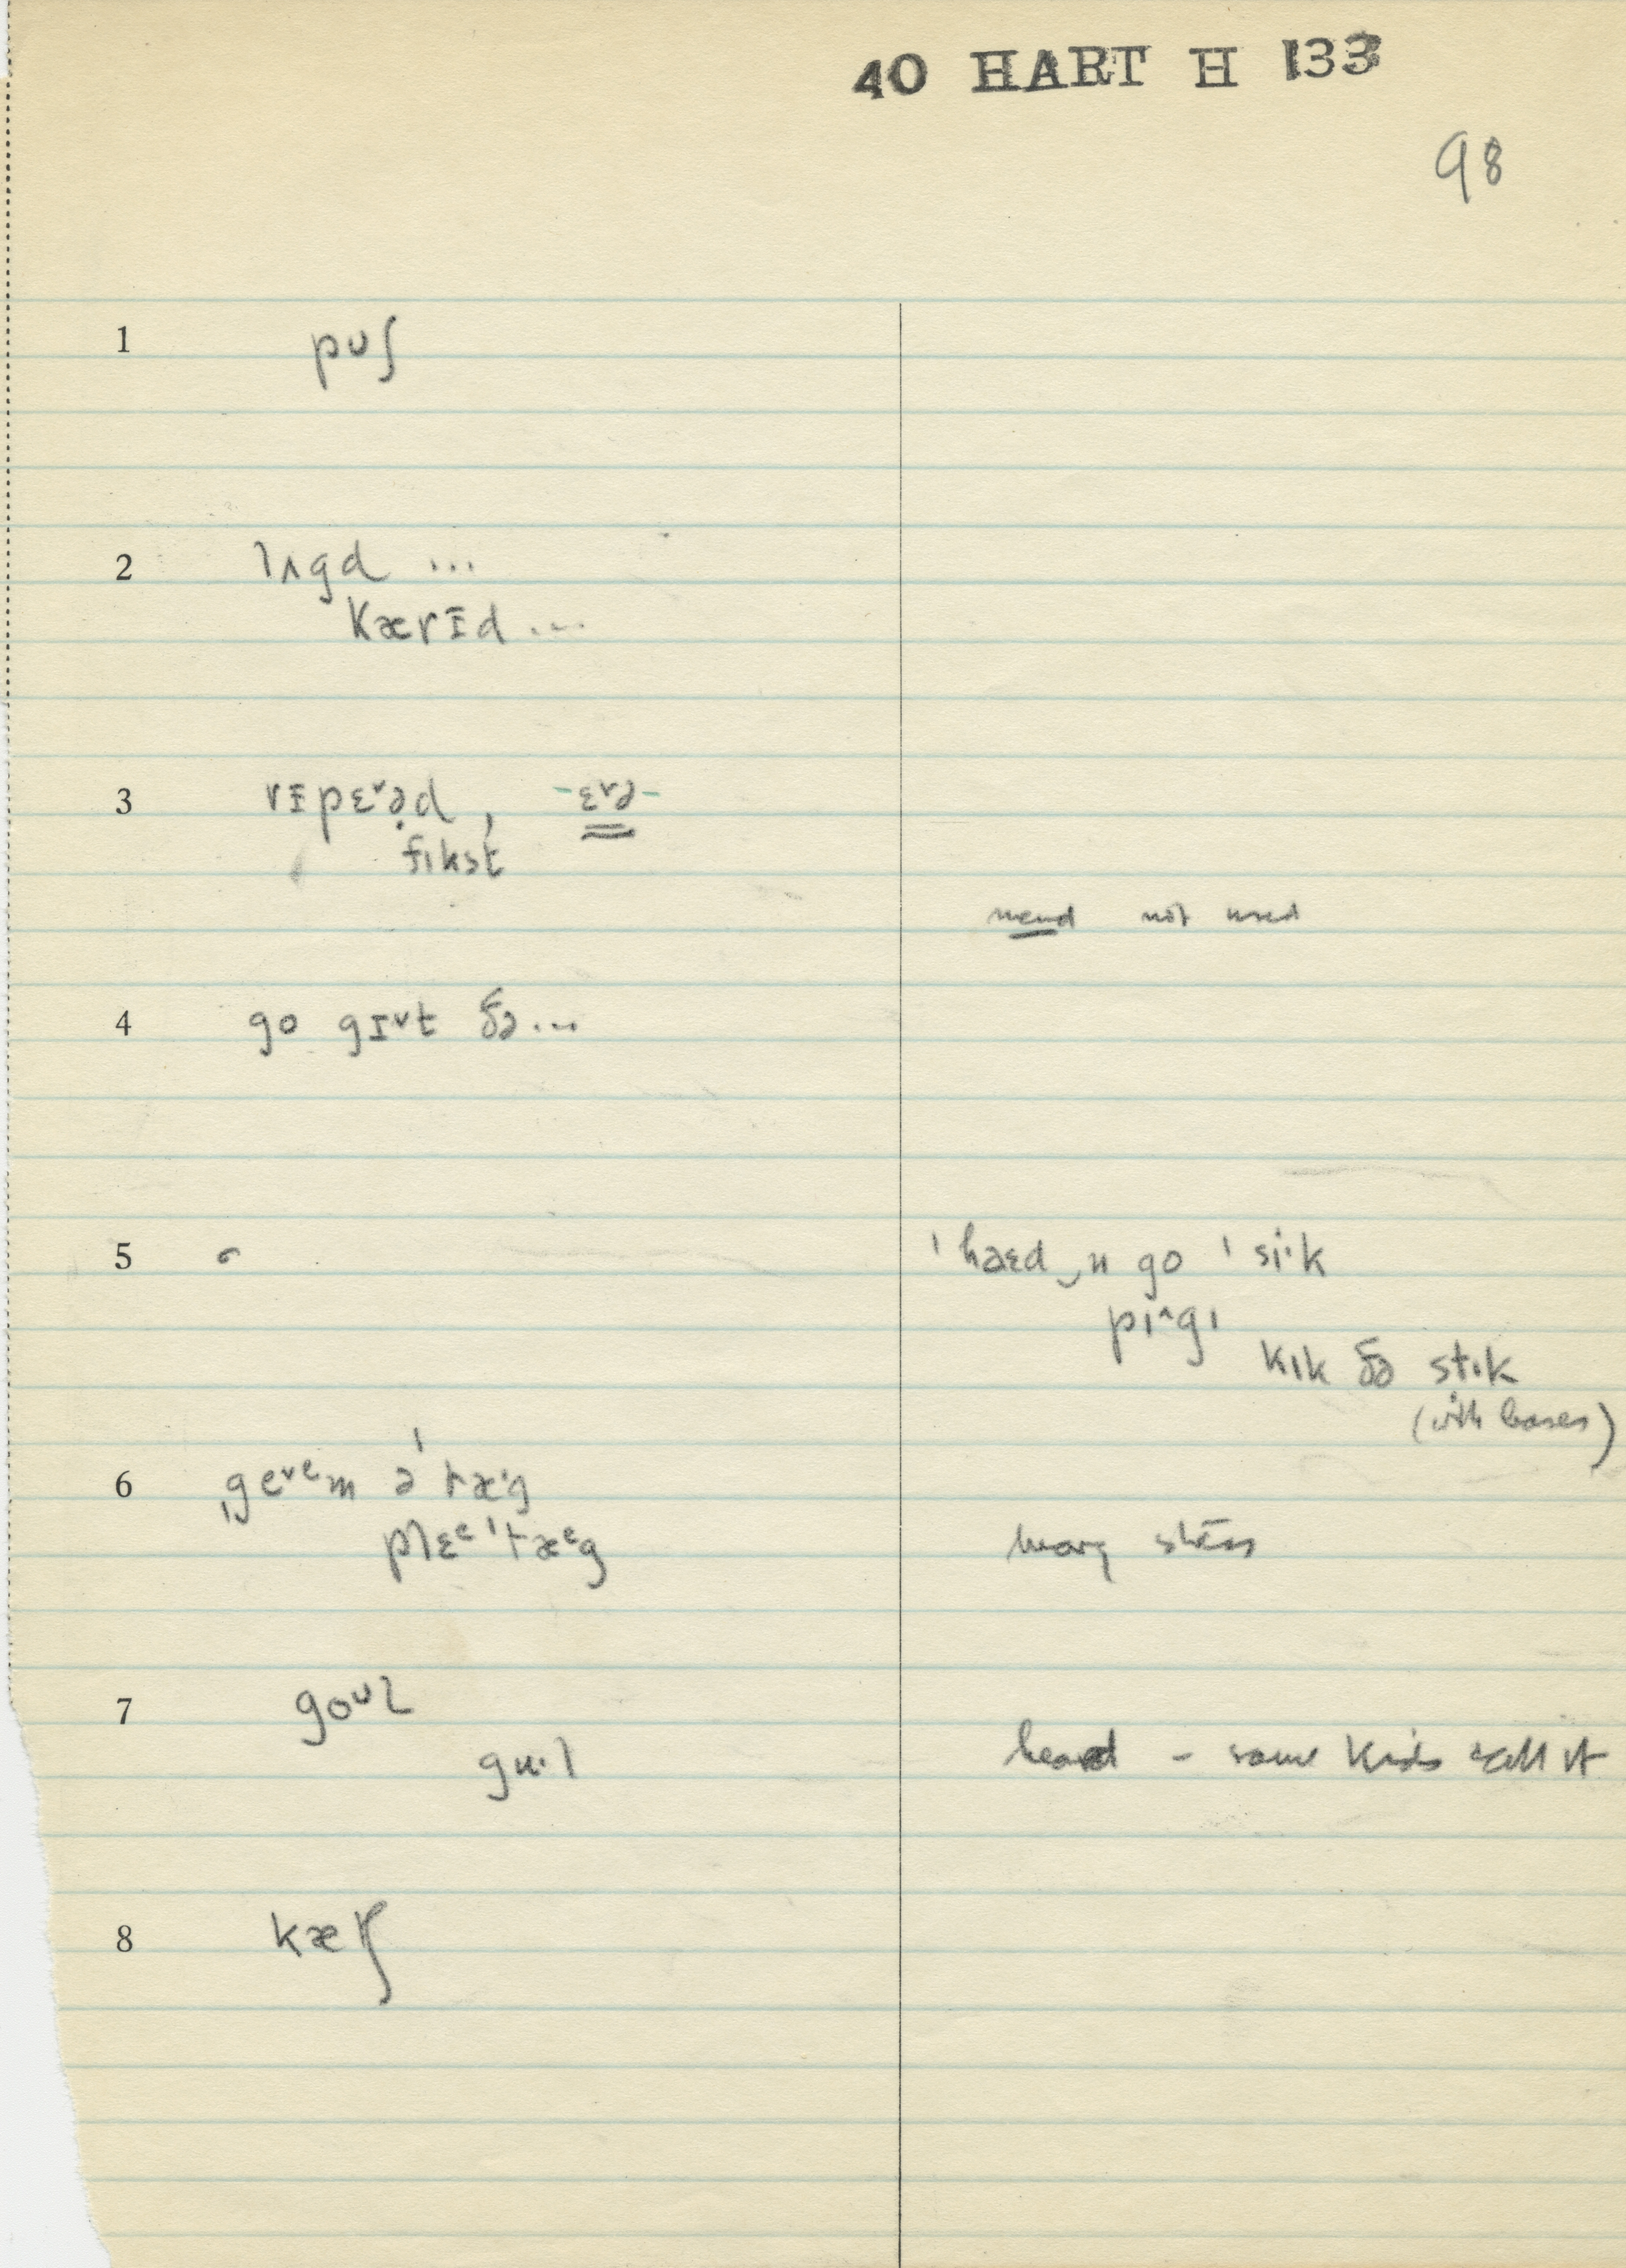 40 HART H 133
98
1 pʊʃ
2 lʌgd ...
kærɪd ...
3 rɪpɛᵛəd, -ɛᵛə-
fɪkst
mend not used
4 go gɪᵛt ðə...
5 ˈhaɛd‿n go ˈsi·k
pɪ^gɪ
kɪk ðə stɪk
(with bases)
6 ˌgeᵛᵉm ə ˈtæ·g
plɛᵉ ˈtæᵉg
heavy stress
7 goᵘl
gu·l
heard - some kids call it
8 kætʃ